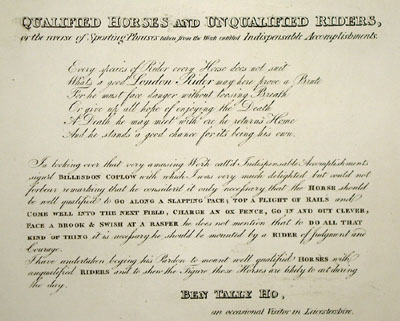 QUALIFIED HORSES AND UNQUALIFIED RIDERS,
or the reverse of Sporting Phrases taken from the Work entitled Indispensable Accomplishments.
Every species of Rider every Horse does not suit
While a good London Rider may here prove a Brute
For he must face danger without loosing Breath
Or give up all hope of enjoying the Death
A Death he may meet with ere he returns Home
And he stands a good chance for its being his own.
In looking over that very amusing Work call'd Indispensable Accomplishments
sign'd BILLESDON COPLOW with which I was very much delighted but could not
forbear remarking that he consider'd it only necessary that the HORSE should
be well qualified to GO ALONG A SLAPPING PACE; TOP A FLIGHT OF RAILS and
COME WELL INTO THE NEXT FIELD, CHARGE AN OX FENCE, GO IN AND OUT CLEVER,
FACE A BROOK & SWISH AT A RASPER he does not mention that to DO ALL THAT
KIND OF THING it is necessary he should be mounted by a RIDER of Judgment and
Courage.
I have undertaken beging his Pardon to mount well qualified HORSES with
unqualified RIDERS and to shew the Figure these Horses are likely to cut during
the day.
BEN TALLY HO,
an occasional Visitor in Leicestershire.